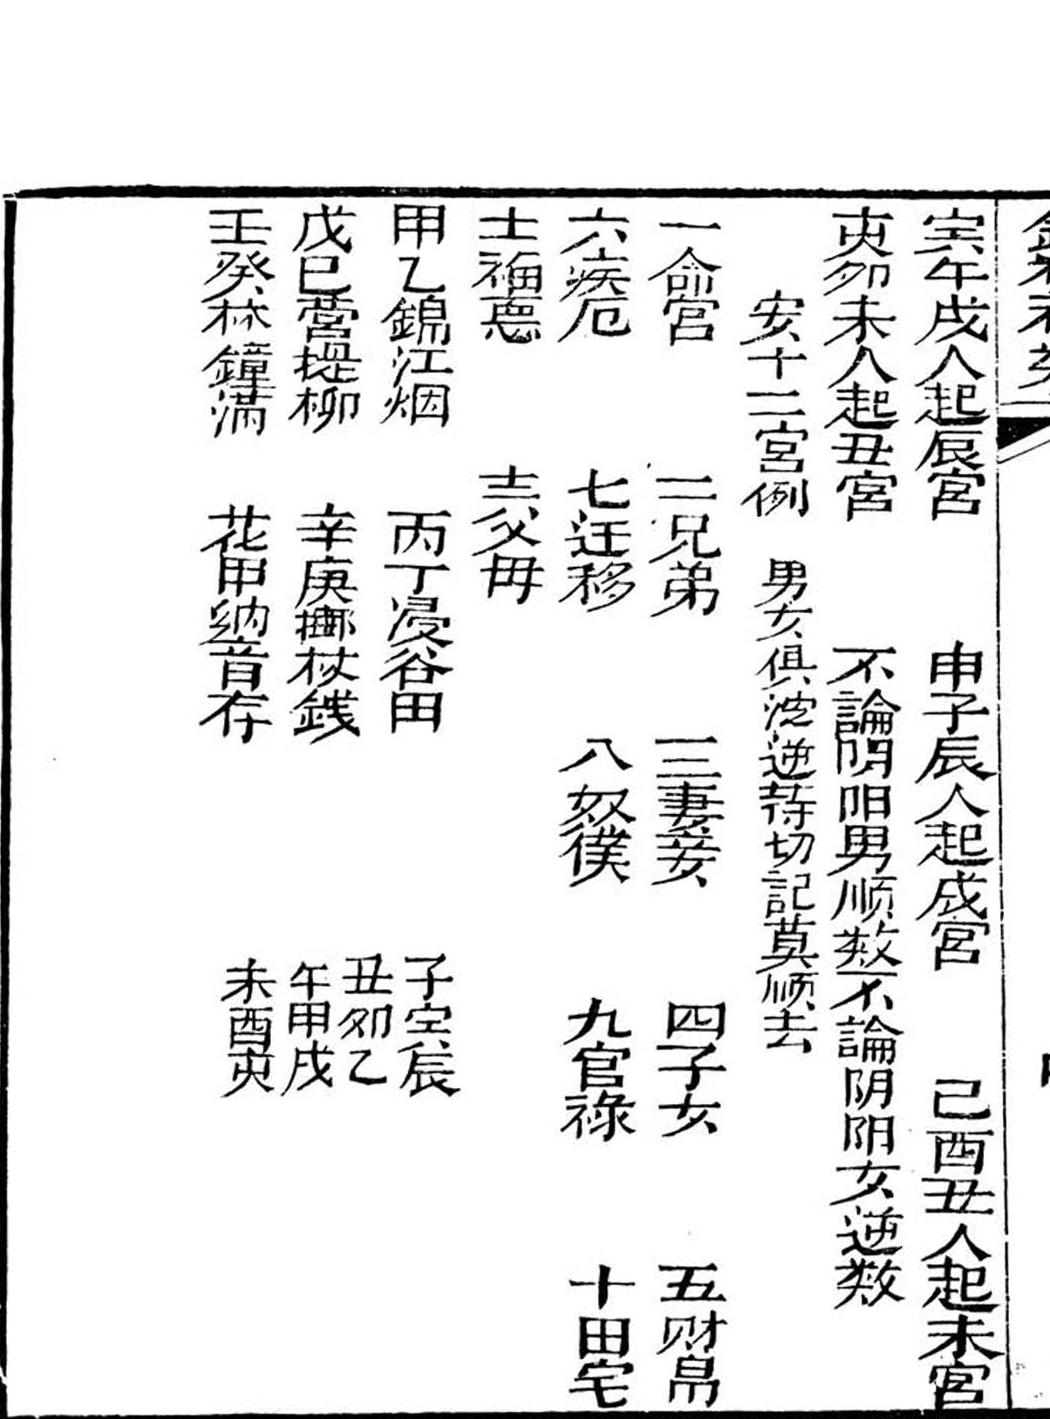 寅午戌人起辰宮　申子辰人起戌宮　己酉丑人起未宮
亥卯未人起丑宮　不論阴阳男順数不論阴阳女逆数
安十二宮例　男女俱迯逆轉切記莫順去
一命宮　二兄弟　三妻妾　四子女　五财帛
六疾厄　七迁移　八奴僕　九官祿　十田宅
士福德　吉父母
甲乙錦江烟　丙丁浸谷田　子寅辰
丑卯乙
戊巳营堤柳　辛庚掛杖錢　午甲戌
壬癸林鐘滿　花甲纳音存　未酉亥